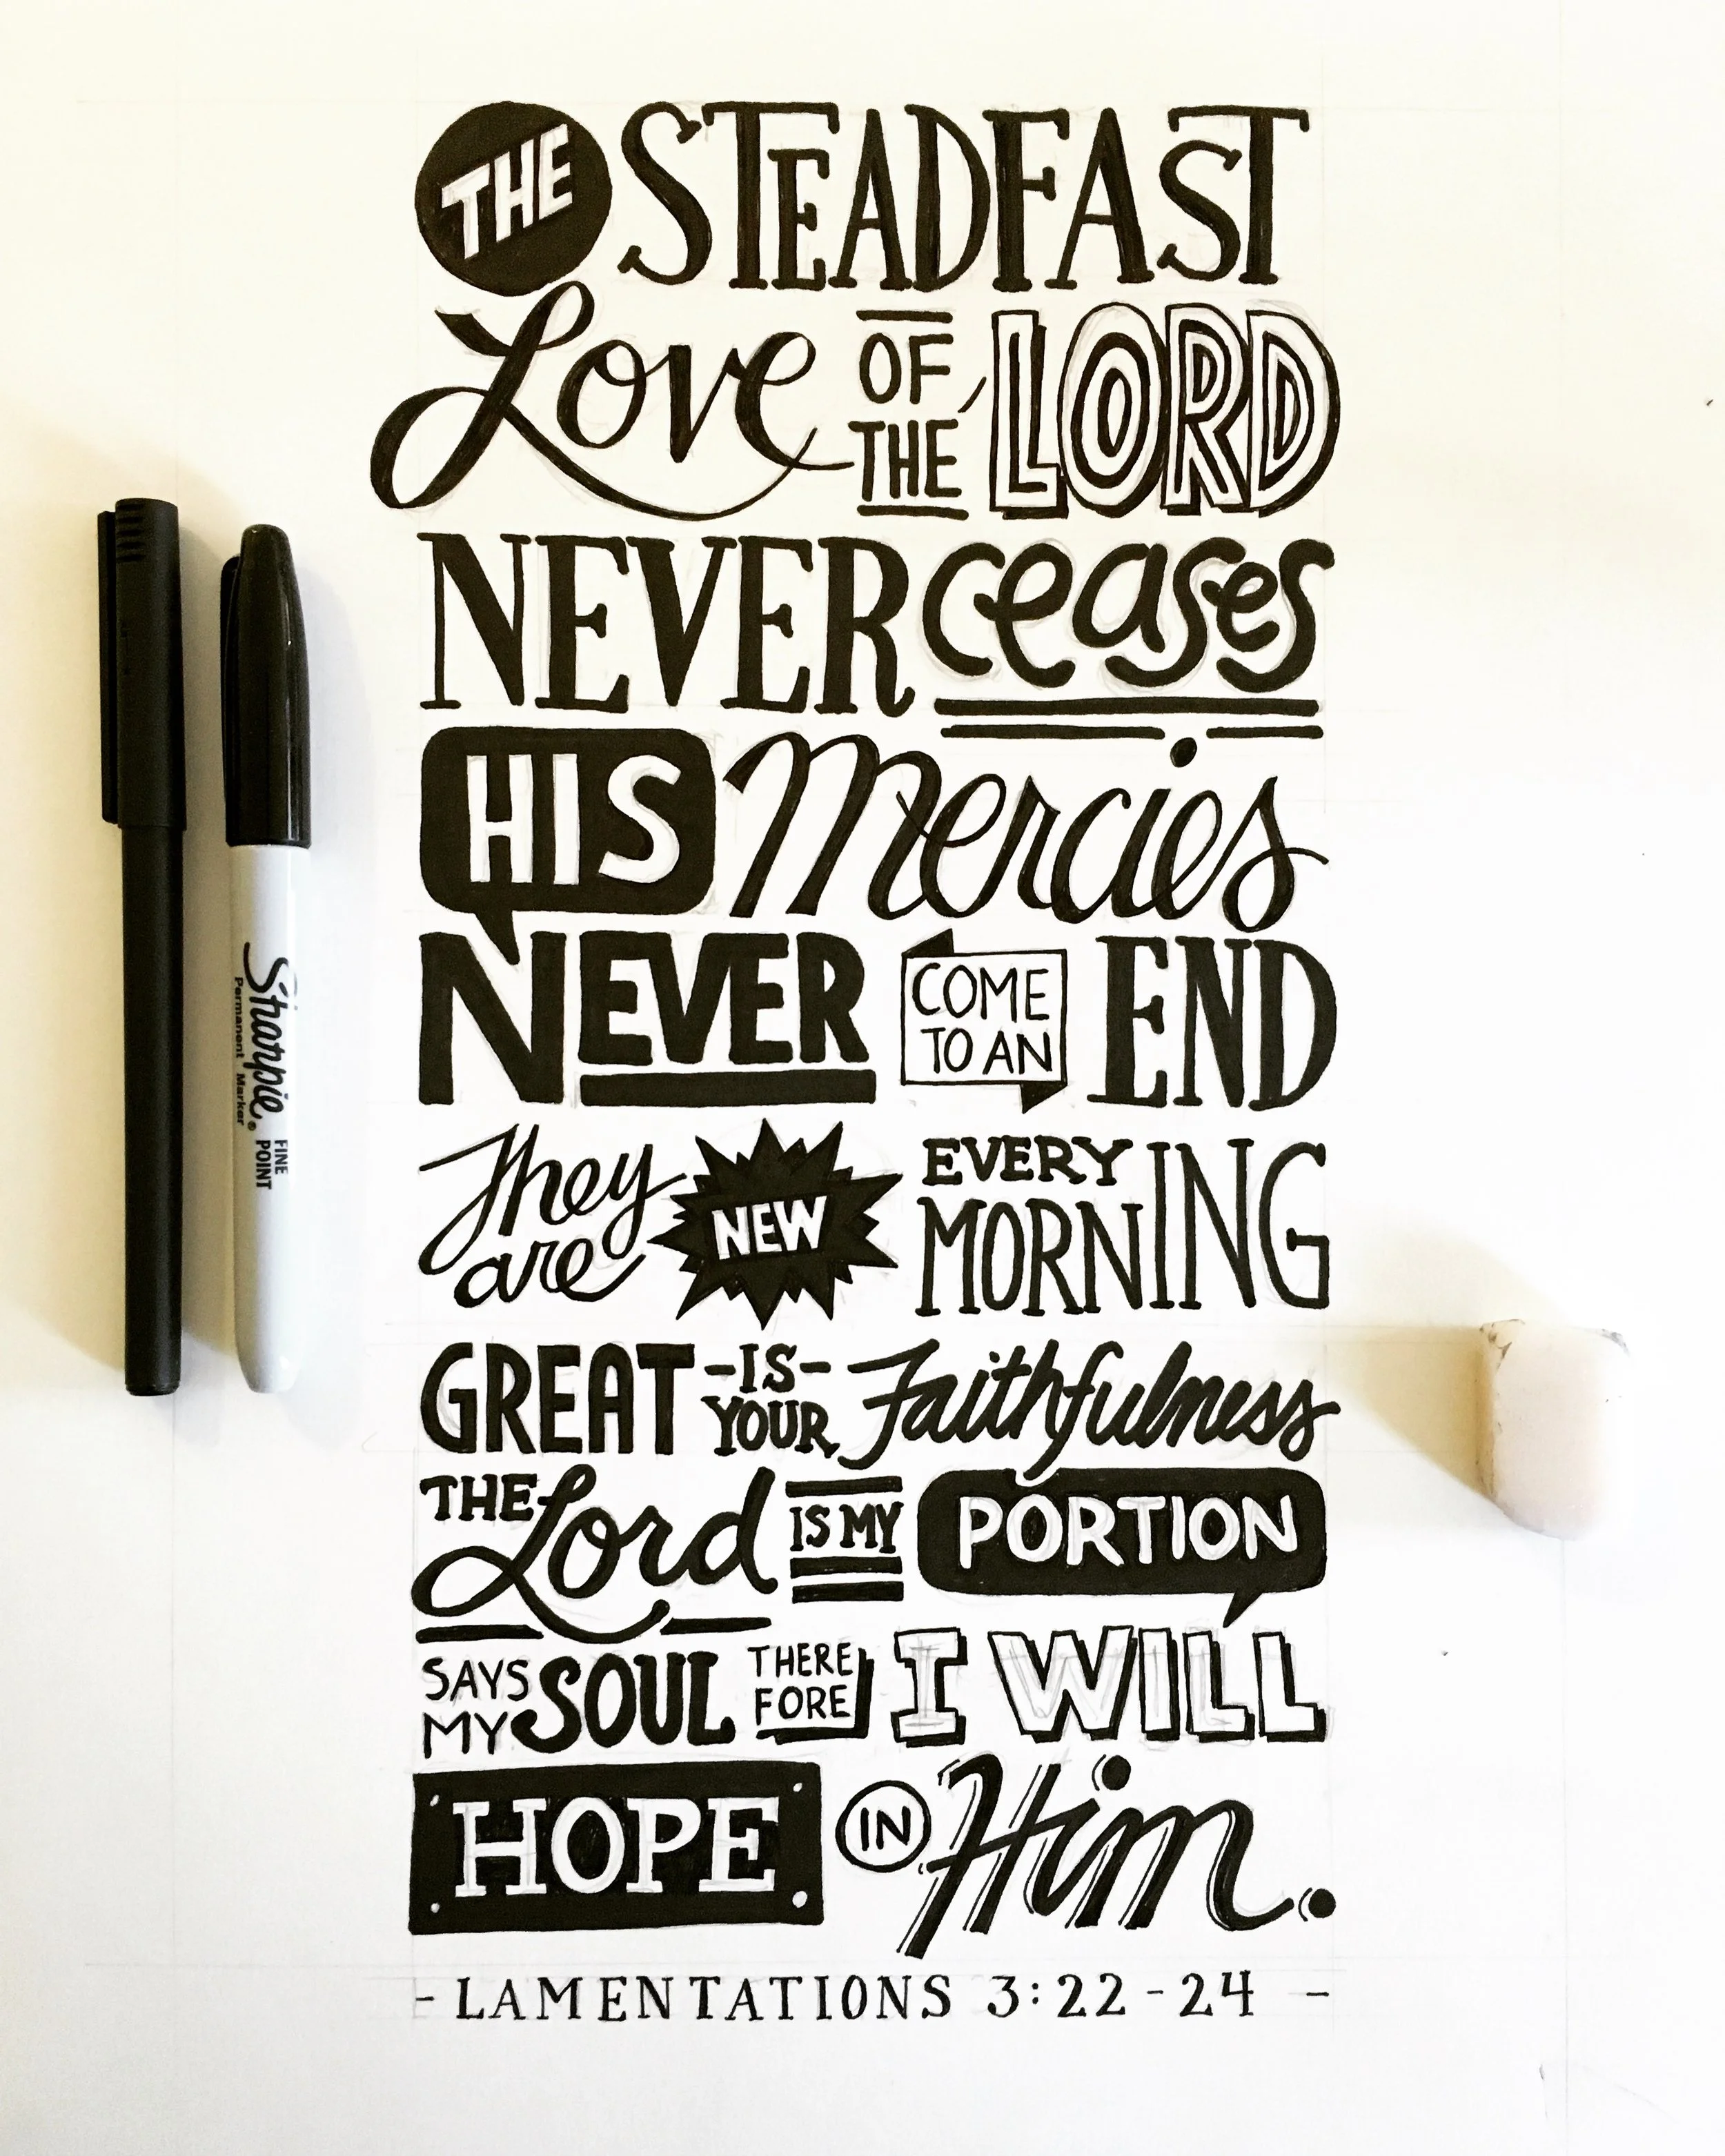 THE STEADFAST
Love OF THE LORD
NEVER ceases
HIS Mercies
NEVER COME TO AN END
They are NEW EVERY MORNING
GREAT -IS- YOUR Faithfulness
THE Lord IS MY PORTION
SAYS MY SOUL THERE FORE I WILL
HOPE IN Him.
- LAMENTATIONS 3:22-24 -
Sharpie® FINE POINT
Permanent Marker